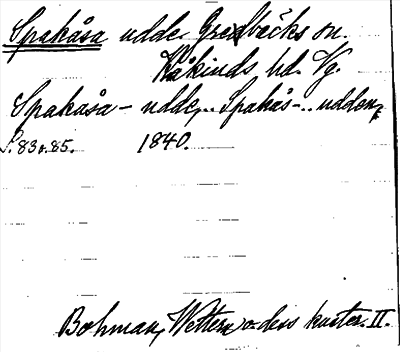 Spakåsa udde Grevbäcks sn.
Kåkinds hd. Vg.
Spakåsa - udde, .. Spakås- .. udden,
S. 83 o. 85. 1840.
Bohman, Wettern o. dess kuster. II.